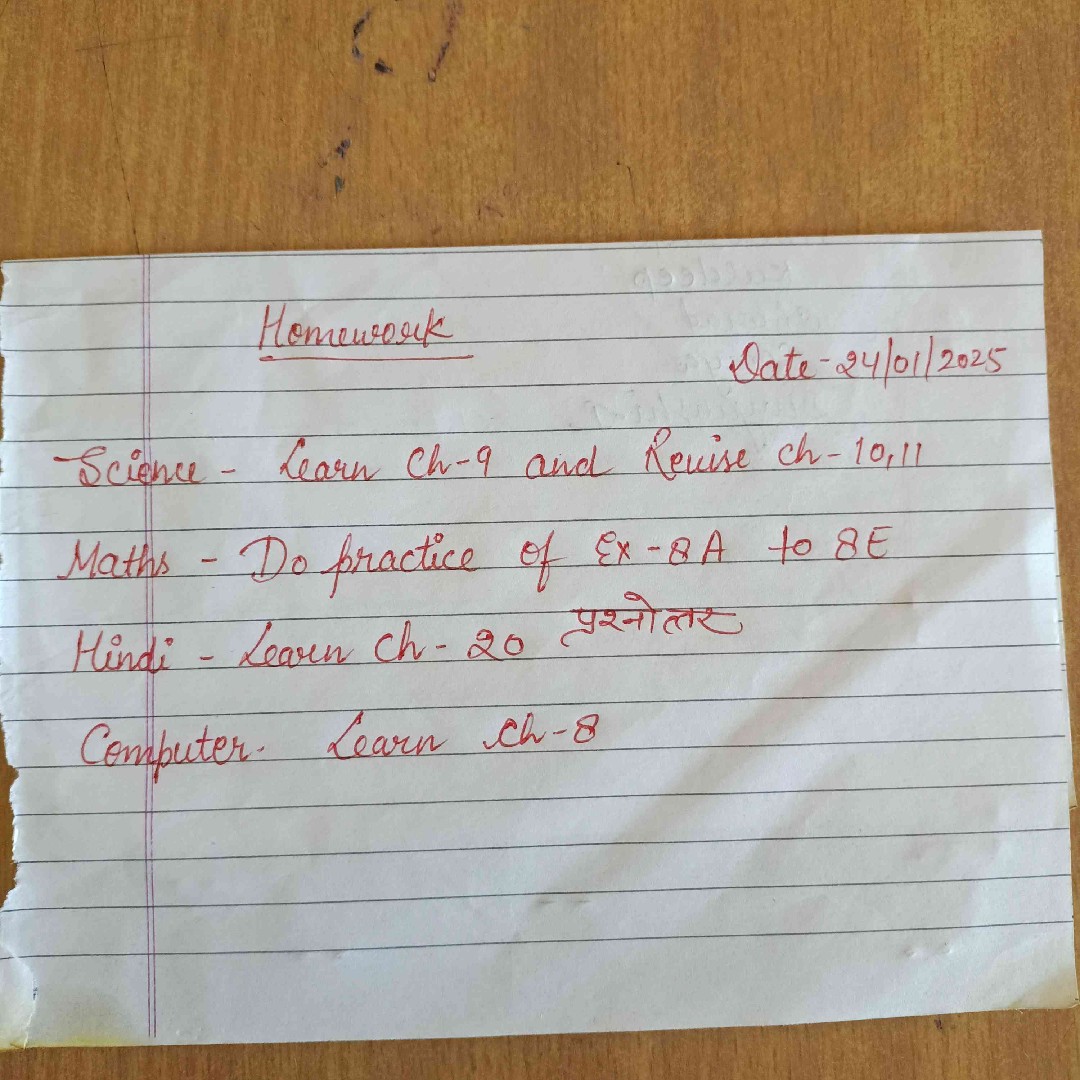 Homework
Date-24/01/2025
Science - Learn Ch-9 and Revise ch-10,11
Maths - Do practice of Ex-8A to 8E
Hindi - Learn Ch-20 प्रश्नोत्तर
Computer. Learn ch-8